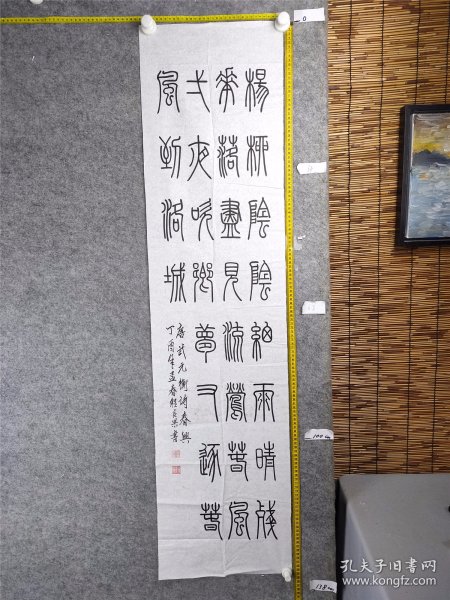 楊柳陰陰細雨晴殘
華落盡見流鶯春風
弌夜吹鄉夢又逐春
風到洛城
唐武元衡詩春興
丁酉年孟春書
0
100cm
138cm
孔夫子旧书网
www.kongfz.com